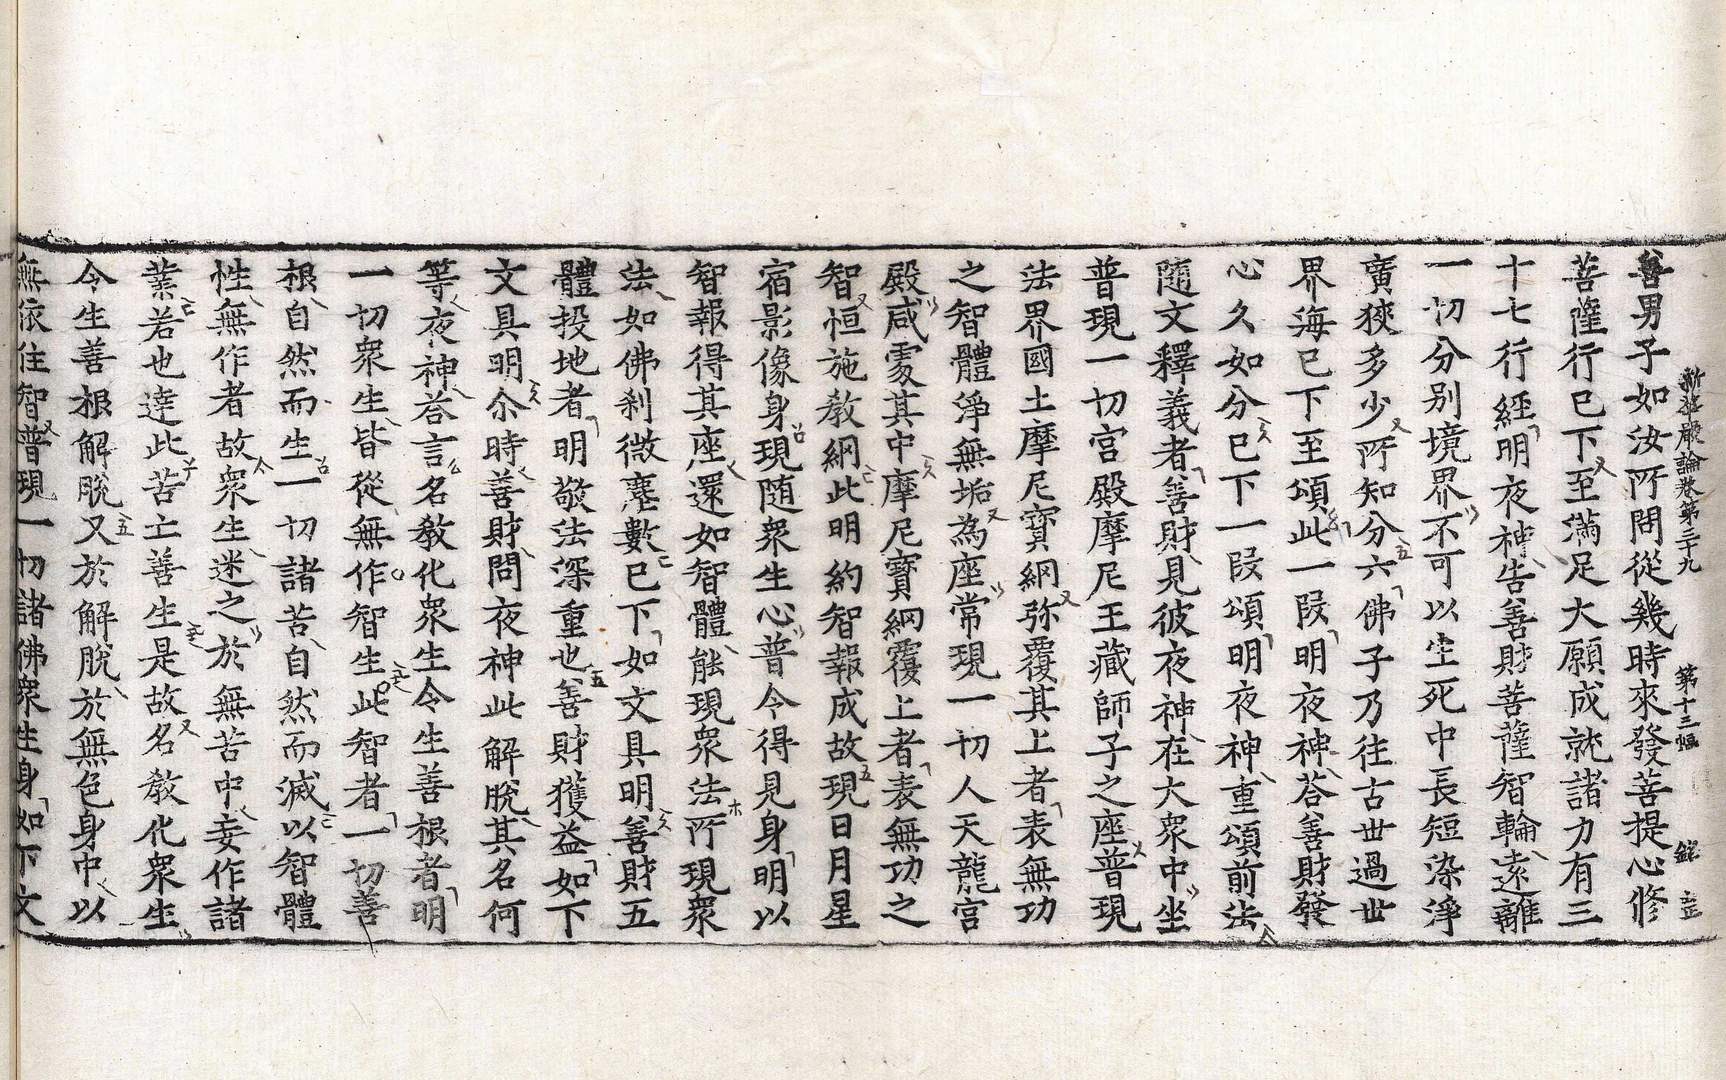 新華嚴論卷第三十九　第十三幅
善男子如汝所問從幾時來發菩提心修
菩薩行已下至滿足大願成就諸力有三
十七行經明夜神告善財菩薩智輪遠離
一切分別境界不可以生死中長短染淨
廣狹多少所知分六佛子乃往古世過世
界海已下至頌此一段明夜神荅善財發
心久如分已下一段頌明夜神重頌前法
随文釋義者善財見彼夜神在大衆中坐
普現一切宫殿摩尼王藏師子之座普現
法界國土摩尼寳網弥覆其上者表無功
之智體淨無垢為座常現一切人天龍宫
殿咸處其中摩尼寳網覆上者表無功之
智恒施教網此明約智報成故現日月星
宿影像身現随衆生心普令得見身明以
智報得其座還如智體能現衆法所現衆
法如佛刹微塵數已下如文具明善財五
體投地者明敬法深重也善財獲益如下
文具明尒時善財問夜神此解脫其名何
等夜神荅言名教化衆生令生善根者明
一切衆生皆從無作智生此智者一切善
根自然而生一切諸苦自然而滅以智體
性無作者故衆生迷之於無苦中妄作諸
業若也達此苦亡善生是故名教化衆生
令生善根解脫又於解脫於無色身中以
無依住智普現一切諸佛衆生身如下文